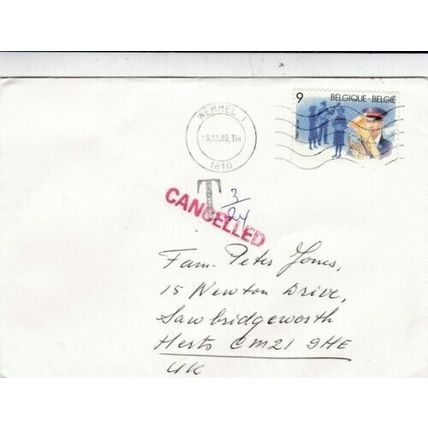 9 BELGIQUE-BELGIË
WEMMEL 1
1810
T 3/24
CANCELLED
Fam. Peter Jones,
15 Newton Drive,
Sawbridgeworth
Herts CM21 9HE
UK